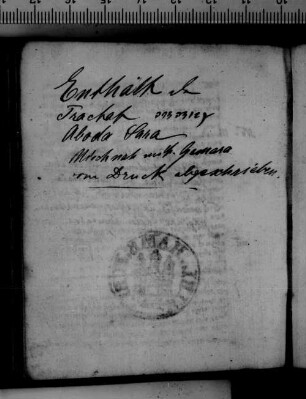 Enthält d
Trachat
Aboda Sara
Mischnah mit Gemara
vom Druck abgeschrieben.